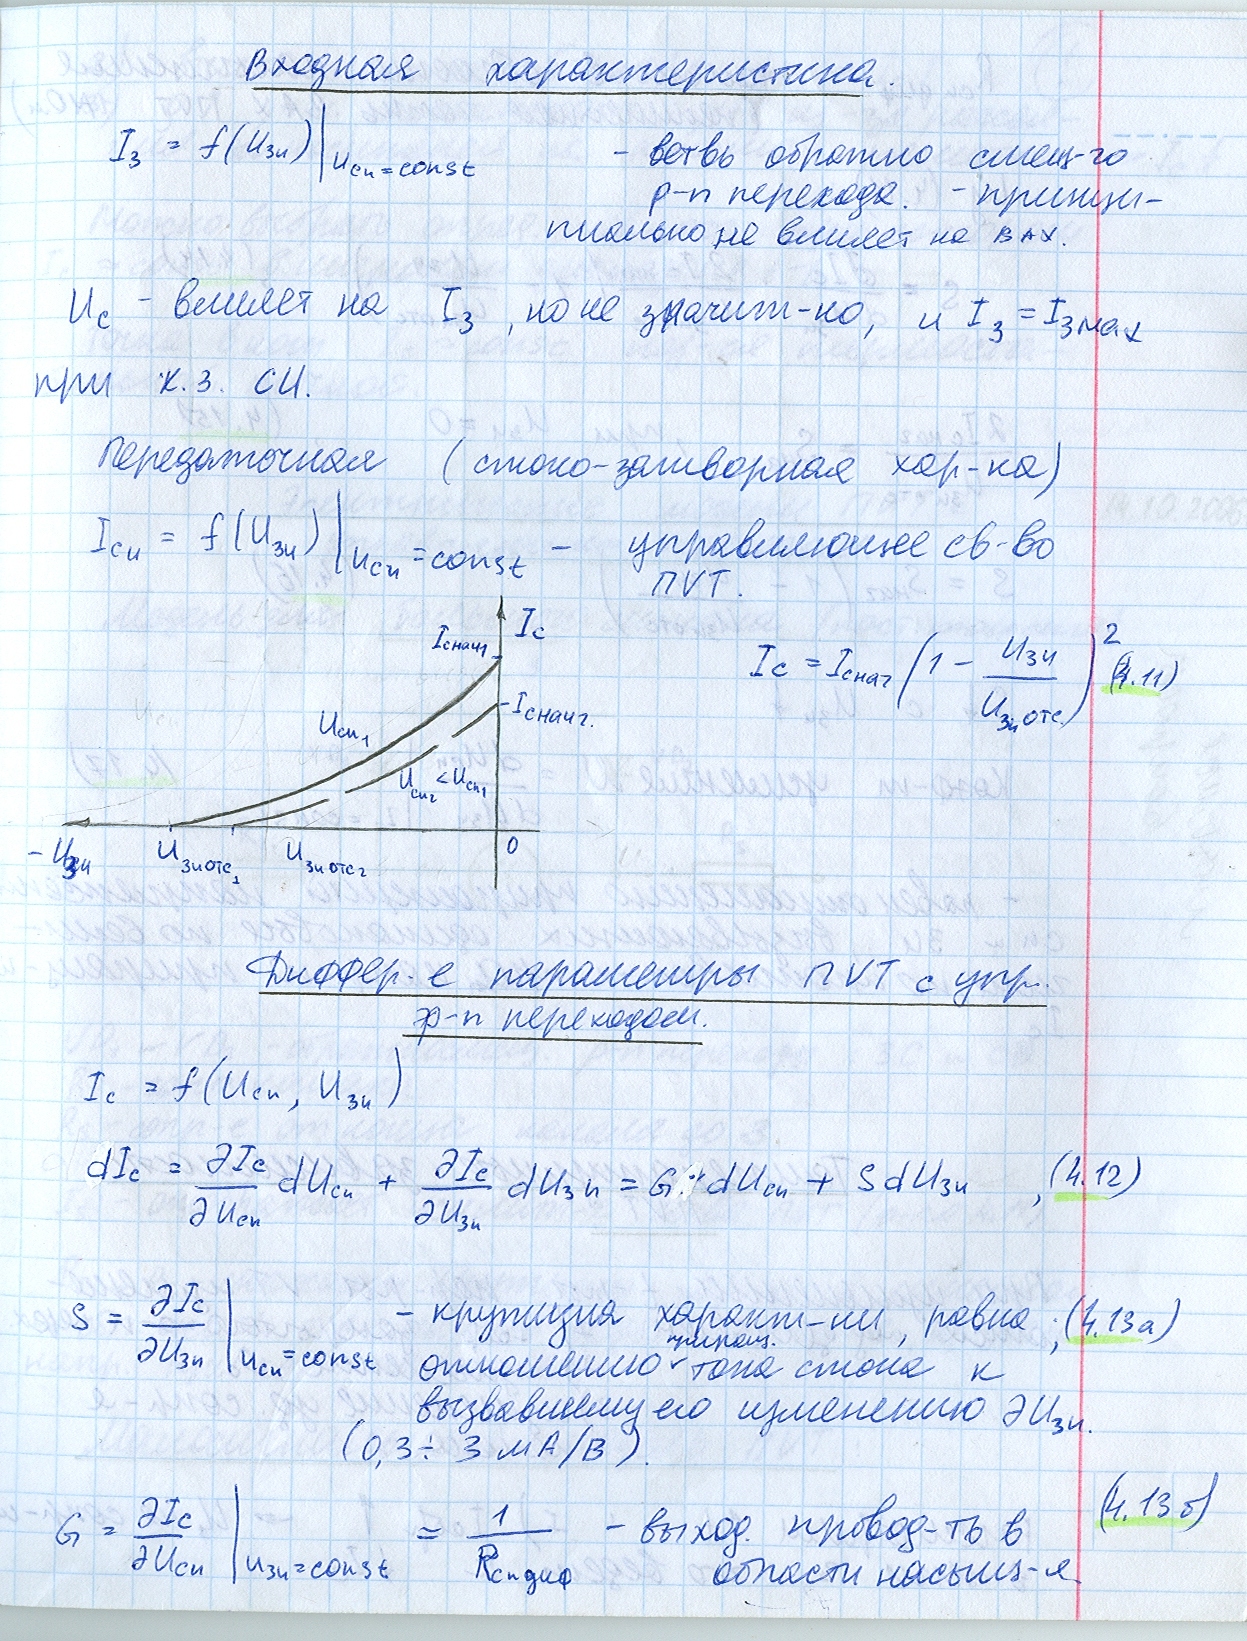 Входная характеристика.
I_з = f(U_зи)|U_си=const - ветвь обратно смещ-го
p-n перехода. - принци-
пиально не влияет на ВАХ.
U_с - влияет на I_з, но не значит-но, и I_з = I_з max
при к.з. СИ.
Передаточная (стоко-затворная хар-ка)
I_си = f(U_зи)|U_си=const - управляющее св-во
ПVТ.
I_с
I_с нач1
I_с = I_с нач (1 - U_зи / U_зи отс)^2 (4.11)
I_с нач2.
U_си1
U_си2 < U_си1
-U_зи U_зи отс1 U_зи отс2 0
Диффер-е параметры ПVТ с упр.
p-n переходом.
I_с = f(U_си, U_зи)
dI_с = ∂I_с/∂U_си dU_си + ∂I_с/∂U_зи dU_зи = G·dU_си + S dU_зи , (4.12)
S = ∂I_с/∂U_зи |U_си=const - крутизна характ-ки, равна ; (4.13а)
приращ.
отношению тока стока к
вызвавшему его изменению ∂U_зи.
(0,3÷3 мА/В).
G = ∂I_с/∂U_си |U_зи=const = 1/R_си диф - выход. провод-ть в (4.13б)
области насыщ-я.